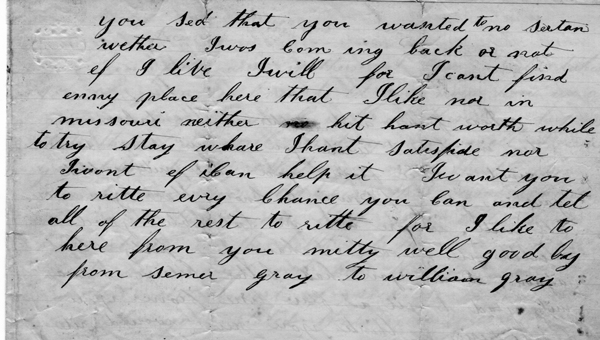 you sed that you wanted to no sertan
wether I wos Com ing back or not
ef I live I will for I cant find
enny place here that I like nor in
missouri neither hit hant worth while
to try stay whare I hant satisfide nor
I wont ef i Can help it I want you
to ritte evry Chance you Can and tel
all of the rest to ritte for I like to
here from you mitty well good by
from semer gray to william gray